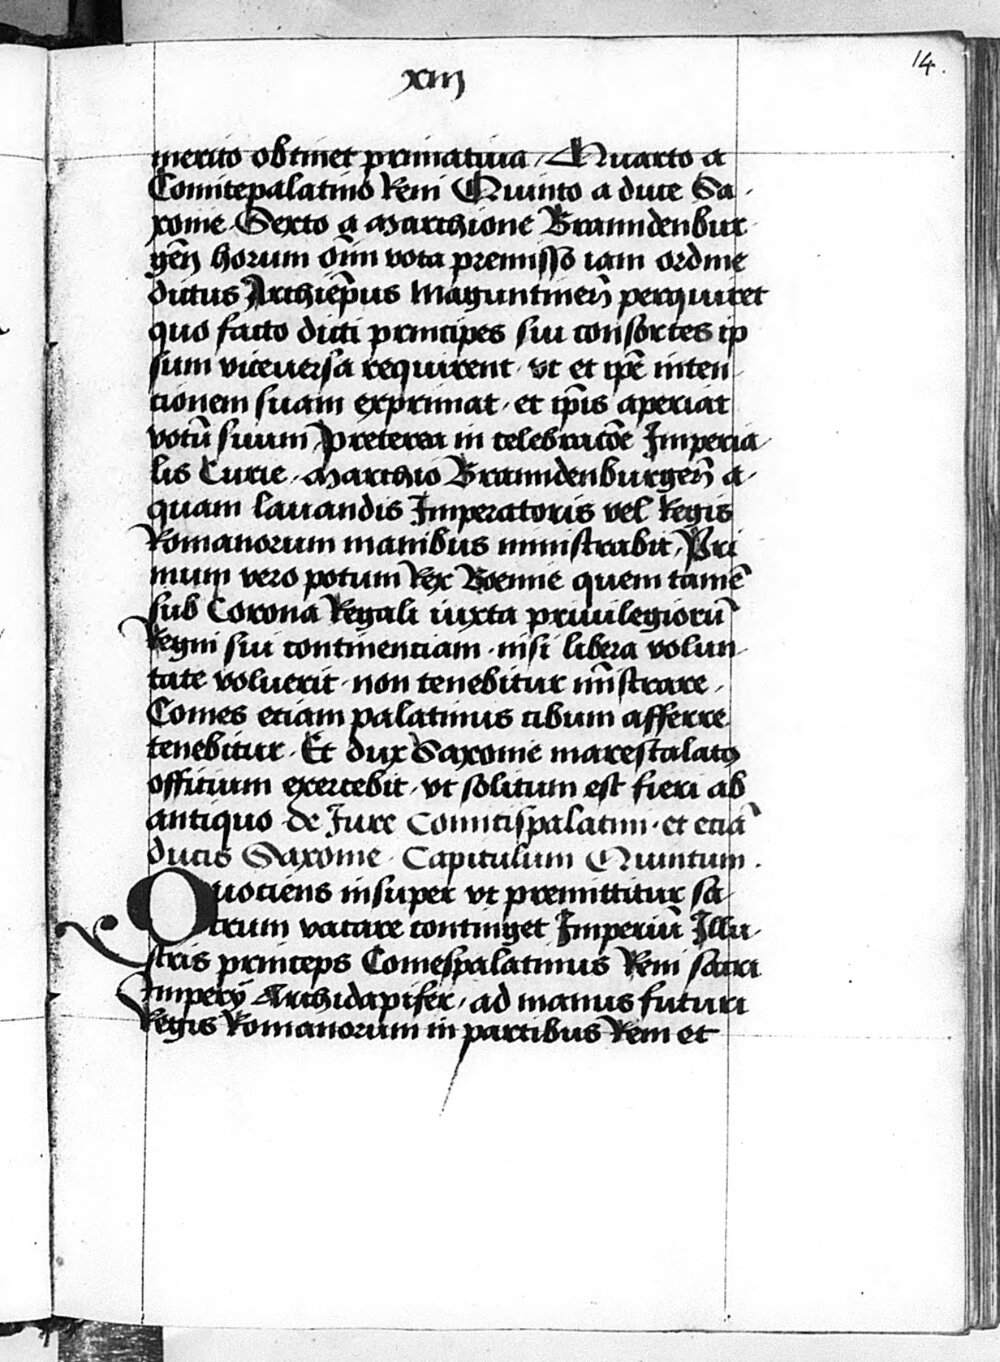 xiiij
14.
merito obtinet primatiua, Quarto a
Comitepalatino Reni Quinto a duce Sa-
xonie Sexto a Marchione Branndenbur-
geñ horum om̄ vota premisso iam ordine
dictus Archiep̄us Maguntineñ perquiret
quo facto dicti principes sui consortes ip
sum viceuersa requirent vt et ip̄e inten-
tionem suam exprimat et ip̄is aperiat
votū suum Preterea in celebracōe Imperia-
lis Curie Marchio Branndenburgeñ a-
quam lauandis Imperatoris vel Regis
Romanorum manibus ministrabit, Pri
mum vero potum Rex Boemie quem tamē
sub Corona Regali iuxta priuilegiorū
Regni sui continenciam nisi libera volun-
tate voluerit non tenebitur mīstrare,
Comes etiam palatinus cibum afferre
tenebitur Et dux Saxonie marescalatꝰ
officium exercebit vt solitum est fieri ab
antiquo de Jure Comitispalatini et etiā
ducis Saxonie Capitulum Quintum.
Quociens insuper vt premittitur sa
crum vacare continget Imperiū Illu-
stris princeps Comespalatinus Reni sacri
Imperÿ Archidapifer, ad manus futuri
Regis Romanorum in partibus Reni et